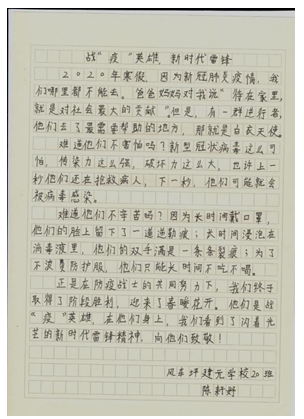 战“疫”英雄，新时代雷锋
2020年寒假，因为新冠肺炎疫情，我
们哪里都不能去。爸爸妈妈对我说“待在家里，
就是对社会最大的贡献”。但是，有一群逆行者，
他们去了最需要帮助的地方，那就是白衣天使。
难道他们不害怕吗？新型冠状病毒这么可
怕，传染力这么强，破坏力这么大，也许上一
秒他们还在抢救病人，下一秒，他们可能就会
被病毒感染。
难道他们不辛苦吗？因为长时间戴口罩，
他们的脸上留下了一道道勒痕；长时间浸泡在
消毒液里，他们的双手满是一条条裂痕；为了
不浪费防护服，他们只能长时间不吃不喝。
正是在防疫战士的共同努力下，我们终于
取得了阶段胜利，迎来了春暖花开。他们是战
“疫”英雄，在他们身上，我们看到了闪着光
芒的新时代雷锋精神，向他们致敬！
坪建元学校20班
陈